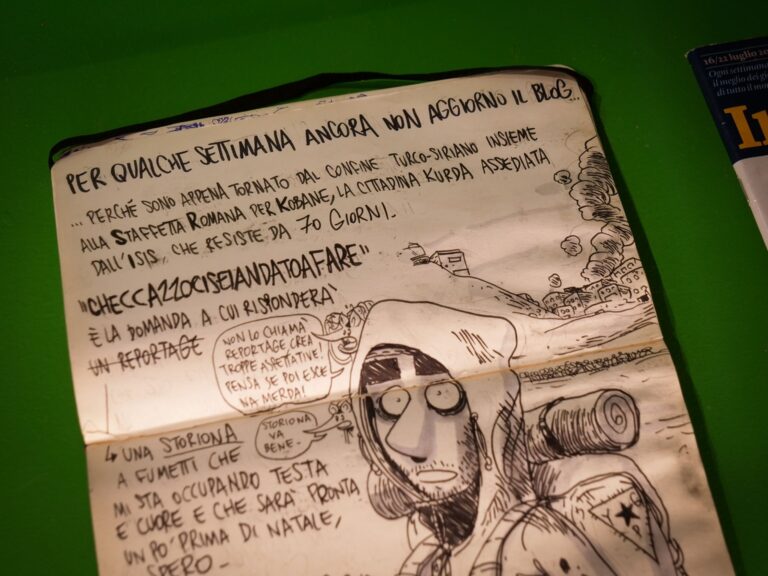 PER QUALCHE SETTIMANA ANCORA NON AGGIORNO IL BLOG...
... PERCHÉ SONO APPENA TORNATO DAL CONFINE TURCO-SIRIANO INSIEME
ALLA STAFFETTA ROMANA PER KOBANE, LA CITTADINA KURDA ASSEDIATA
DALL'ISIS, CHE RESISTE DA 70 GIORNI.
"CHECCAZZOCISEIANDATOAFARE"
È LA DOMANDA A CUI RISPONDERÀ
UN REPORTAGE
NON LO CHIAMÀ
REPORTAGE CREA
TROPPE ASPETTATIVE!
PENSA SE POI ESCE
NA MERDA!
STORIONA
VA
BENE-
UNA STORIONA
A FUMETTI CHE
MI STA OCCUPANDO TESTA
E CUORE E CHE SARÀ PRONTA
UN PO' PRIMA DI NATALE,
SPERO-
16/22 luglio 20
Ogni settimana
il meglio dei gi
di tutto il mon
In